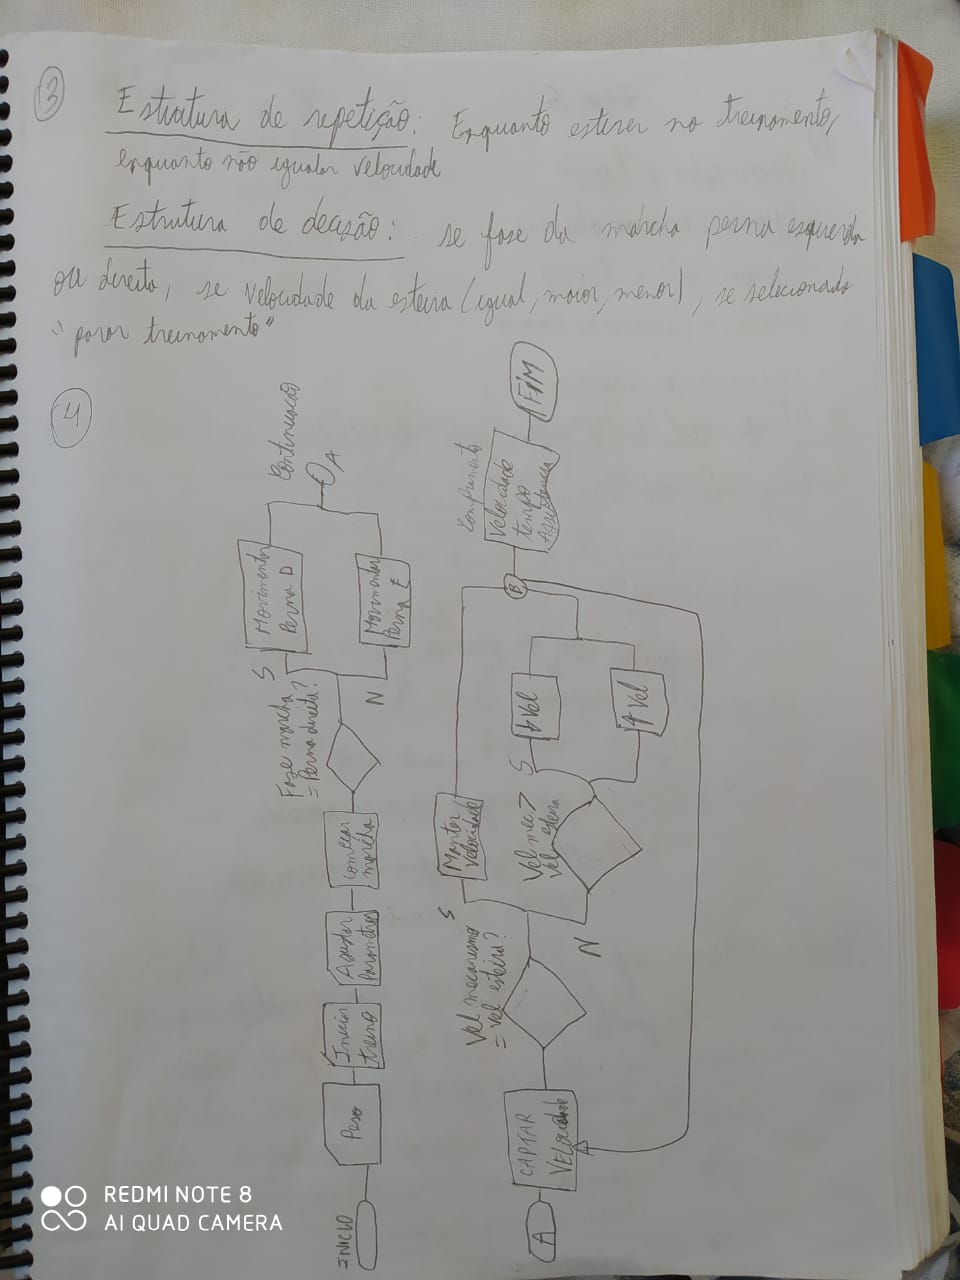 3
Estrutura de repetição: Enquanto estiver no treinamento,
enquanto não igualar velocidade
Estrutura de decisão: se fase da marcha perna esquerda
ou direita, se velocidade da esteira (igual, maior, menor), se selecionado
"parar treinamento"
4
INICIO
Peso
Iniciar
treino
Ajustar
Parametros
Começar
marcha
Fase marcha
= Perna direita?
S
N
Movimentar
Perna D
Movimentar
Perna E
A
Continuação
A
CAPTAR
VELOCIDADE
Vel mecanismo
= Vel esteira?
S
N
Manter
Velocidade
Vel mec >
Vel esteira
S
↓ Vel
↑ Vel
B
Comprimento
Velocidade
tempo
Assistencia
FIM
REDMI NOTE 8
AI QUAD CAMERA